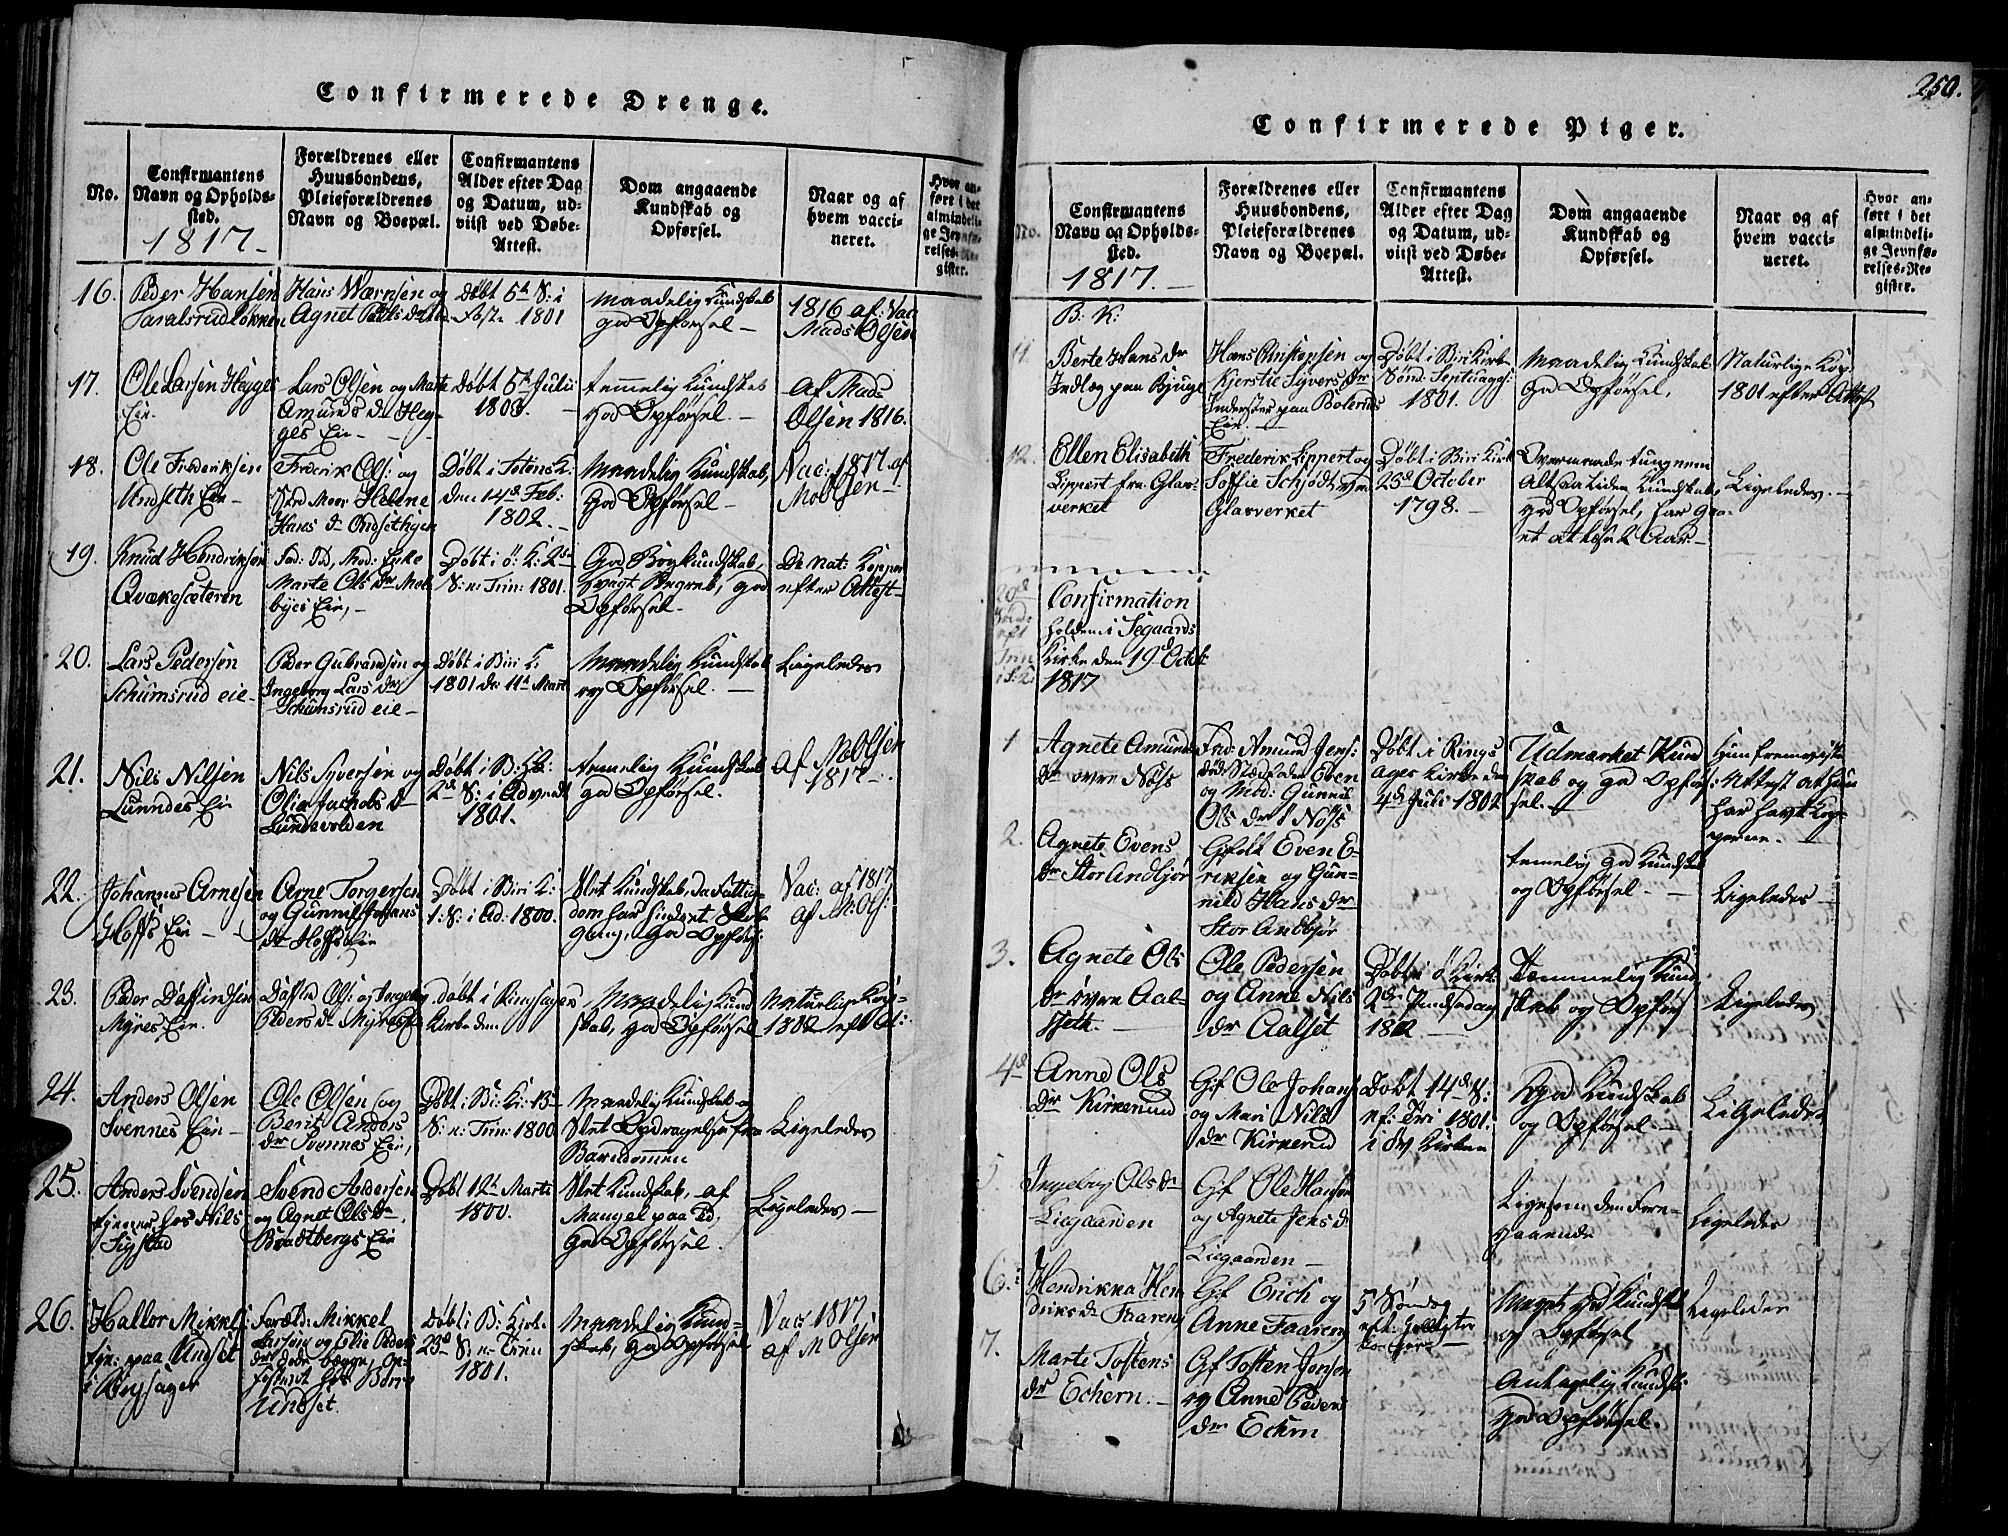 Confirmerede Drenge.
No.
Confirmantens Navn og Opholdssted.
1817.
Forældrenes eller Huusbondens, Pleieforældrenes Navn og Boepæl.
Confirmantens Alder efter Dag og Datum, udviist ved Døbe-Attest.
Dom angaaende Kundskab og Opførsel.
Naar og af hvem vaccineret.
Hvor anført i det almindelige Jevnførelses-Register.
16.
Peder Hansen
Hans Wærnsen og
Agnet
Døbt 5te S: i
1801
Maadelig Kundskab
god Opførsel
1816 af: Vac
Mads Olsen
17.
Ole Larsen Hegges
Eie.
Lars Olsen og Marte
Amunds dr Heg-
ges Eie
Døbt 5te Julii
1803.
temmelig Kundskab
god Opførsel.
af Mads
Olsen 1816.
18.
Ole Frederiksen
Undseth Eie
Frederik Ols: og
Sted Moer Helene
Hans dr Ondsethyen
Døbt i Totens K:
den 14de Feb:
1802.
Maadelig Kundskab,
god Opførsel
Vac: 1817 af
M Olsen
19.
Knud Hendriksen
Qvækesæteren
Marte Ols dr
byes Eie,
Døbt i ö: K: 2de
S: n: Trin: 1801.
God Bogkundskab,
svagt Begreb, god
Opførsel.
De nat: Kopper
efter Attest
20.
Lars Pedersen
Schumsrud eie
Peder Gulbrandsen og
Ingeborg Lars dr
Schumsrud eie
Døbt i Biri K:
1801 de: 11te Mart
Maadelig Kundskab
og Opførsel.
Ligeledes
21.
Nils Nilsen
Lunndes Eie
Nils Syversen og
Olia Jachobs dr
Lundevolden
Døbt i B: K:
2de S: i Advent
1801.
temelig Kundskab
god Opførsel.
af M Olsen
1817.
22.
Johannes Arnesen
Hoffs Eie
Arne Torgersen
og Gunnil
dr Hoffs Eie
Døbt i Biri K:
1: S: i Ad. 1800.
Slet Kundskab, da Fattig-
dom har hindret Skole
gang, god Opførs:
Vac: af 1817
af M: Ols:
23.
Peder Daffindsen
Mynes Eie.
Peders dr Mynes Eie
døbt i Ringsager
Kirke den
Maadelig Kund
skab, god Opførsel
Naturlige Kop-
1802 eft At:
24.
Anders Olsen
Svennes Eie
Ole Olsen og
Berit Anders
dr Svennes Eie,
Døbt i Bi: Ki: 13
S: n: Trin: 1800
Maadelig Kundskab
Slet Opdragelse fra
Barndommen
Ligeledes
25.
Anders Svendsen
tjener hos Nils
Sigstad
Svend Andersen
og Agnet Ols dr
Bradtbergs Eie
Døbt 12te Marti
1800.
Slet Kundskab, af
Mangel paa Tid,
god Opførsel.
Ligeledes
26.
Hallor Mikkels:
tjen: paa Undset
i Ringsager
Foræld: Mikkel
Larsen og Olie Peders
dr døde begge, Op-
fostret hos
Undset.
Døbt i B: Kirk:
23de S: n: Trin
1801.
Maadelig Kund-
skab, god Opførsel
Vac: 1817
af M Olsen
250.
Confirmerede Piger.
No.
Confirmantens Navn og Opholdssted.
1817.
Forældrenes eller Huusbondens, Pleieforældrenes Navn og Boepæl.
Confirmantens Alder efter Dag og Datum, udviist ved Døbe-Attest.
Dom angaaende Kundskab og Opførsel.
Naar og af hvem vaccineret.
Hvor anført i det almindelige Jevnførelses-Register.
B: K:
11.
Berte Hans dr
Indlog paa Bjuge
Hans Christensen og
Kjerstie Syvers dr
Inderster paa Bolerud
Eie.
Døbt i Biri Kirke
Sönd: Septuages:
1801.
Maadelig Kundskab
god Opførsel,
Naturlige Kop:
1801 efter Attest
12.
Ellen Elisabeth
Lippert fra Glas-
verket
Frederik Lippert og
Soffie Schjødt ved
Glasverket
Døbt i Biri Kirk
23de October
1798.
Overmaade tungnem
altsaa liden Kundskab,
god Opførsel, har gaa-
et attest 2 Aar
Ligeledes.
Confirmation
holden i Segaards
Kirke den 19de Octob:
1817
1
Agnete Amunds
dr øvre Nöss
Amund Jens:
död: Stedfader Even
og Mod: Gunnil
Ols dr Nöss
Døbt i Rings
ager Kirke den
4de Juli 1802
Udmærket Kund
skab og god Opfør
sel.
Hun fremviste
Attest at hun
har havt Kop-
perne.
2.
Agnete Evens
dr Stor Andbjør
Gfolk Even E-
riksen og Gun-
nild Hans dr
Stor Andbjør
temelig god Kundskab
og Opførsel.
Ligeledes
3.
Agnete Ols
dr övre Aal-
seth.
Ole Pedersen
og Anne Nils
dr Aalset
Døbt i ö Kirk:
2den Pindsedag
1802
Temmelig Kund
skab og Opførs
Ligeledes
4de
Anne Ols
dr Kirkerud
Gf Ole Johans
og Mari Nils
dr Kirkerud
Døbt 14de S:
nf: Tri 1801.
God Kundskab
og Opførsel
Ligeledes
5.
Ingeborg Ols dr
Liegaarden
Gf Ole Hansen
og Agnete Jens dr
Liegaarden
Ligesom den Fore-
gaaende
Ligeledes
6.
Hendrikka Hen
driks dr Faareng
Gf Erich og
Anne Faareng
5 Søndag
eft: Hellig tre
Konger
Meget god Kundskab
og Opførsel
Ligeledes
7.
Marte Tostens
dr Echern.
Gf Tosten Jonsen
og Anne Peders
dr Echrn
Antagelig Kundsk:
god Opførsel.